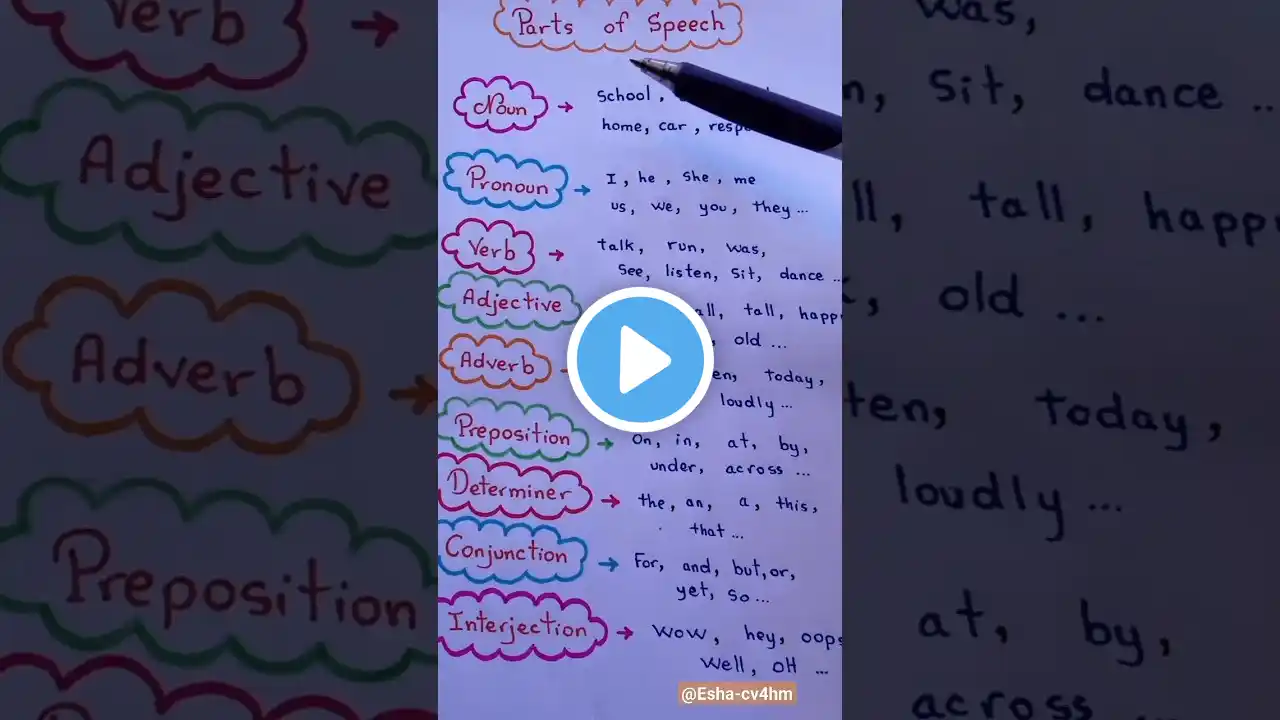 Parts of Speech
Noun → School,
home, car,
Pronoun → I, he, She, me
us, we, you, they...
Verb → talk, run, was,
See, listen, Sit, dance...
Adjective tall, happy
old...
Adverb today,
loudly...
Preposition → On, in, at, by,
under, across ...
Determiner → the, an, a, this,
that ...
Conjunction → For, and, but, or,
yet, So...
Interjection → WOW, hey, oops
Well, OH ...
@Esha-cv4hm